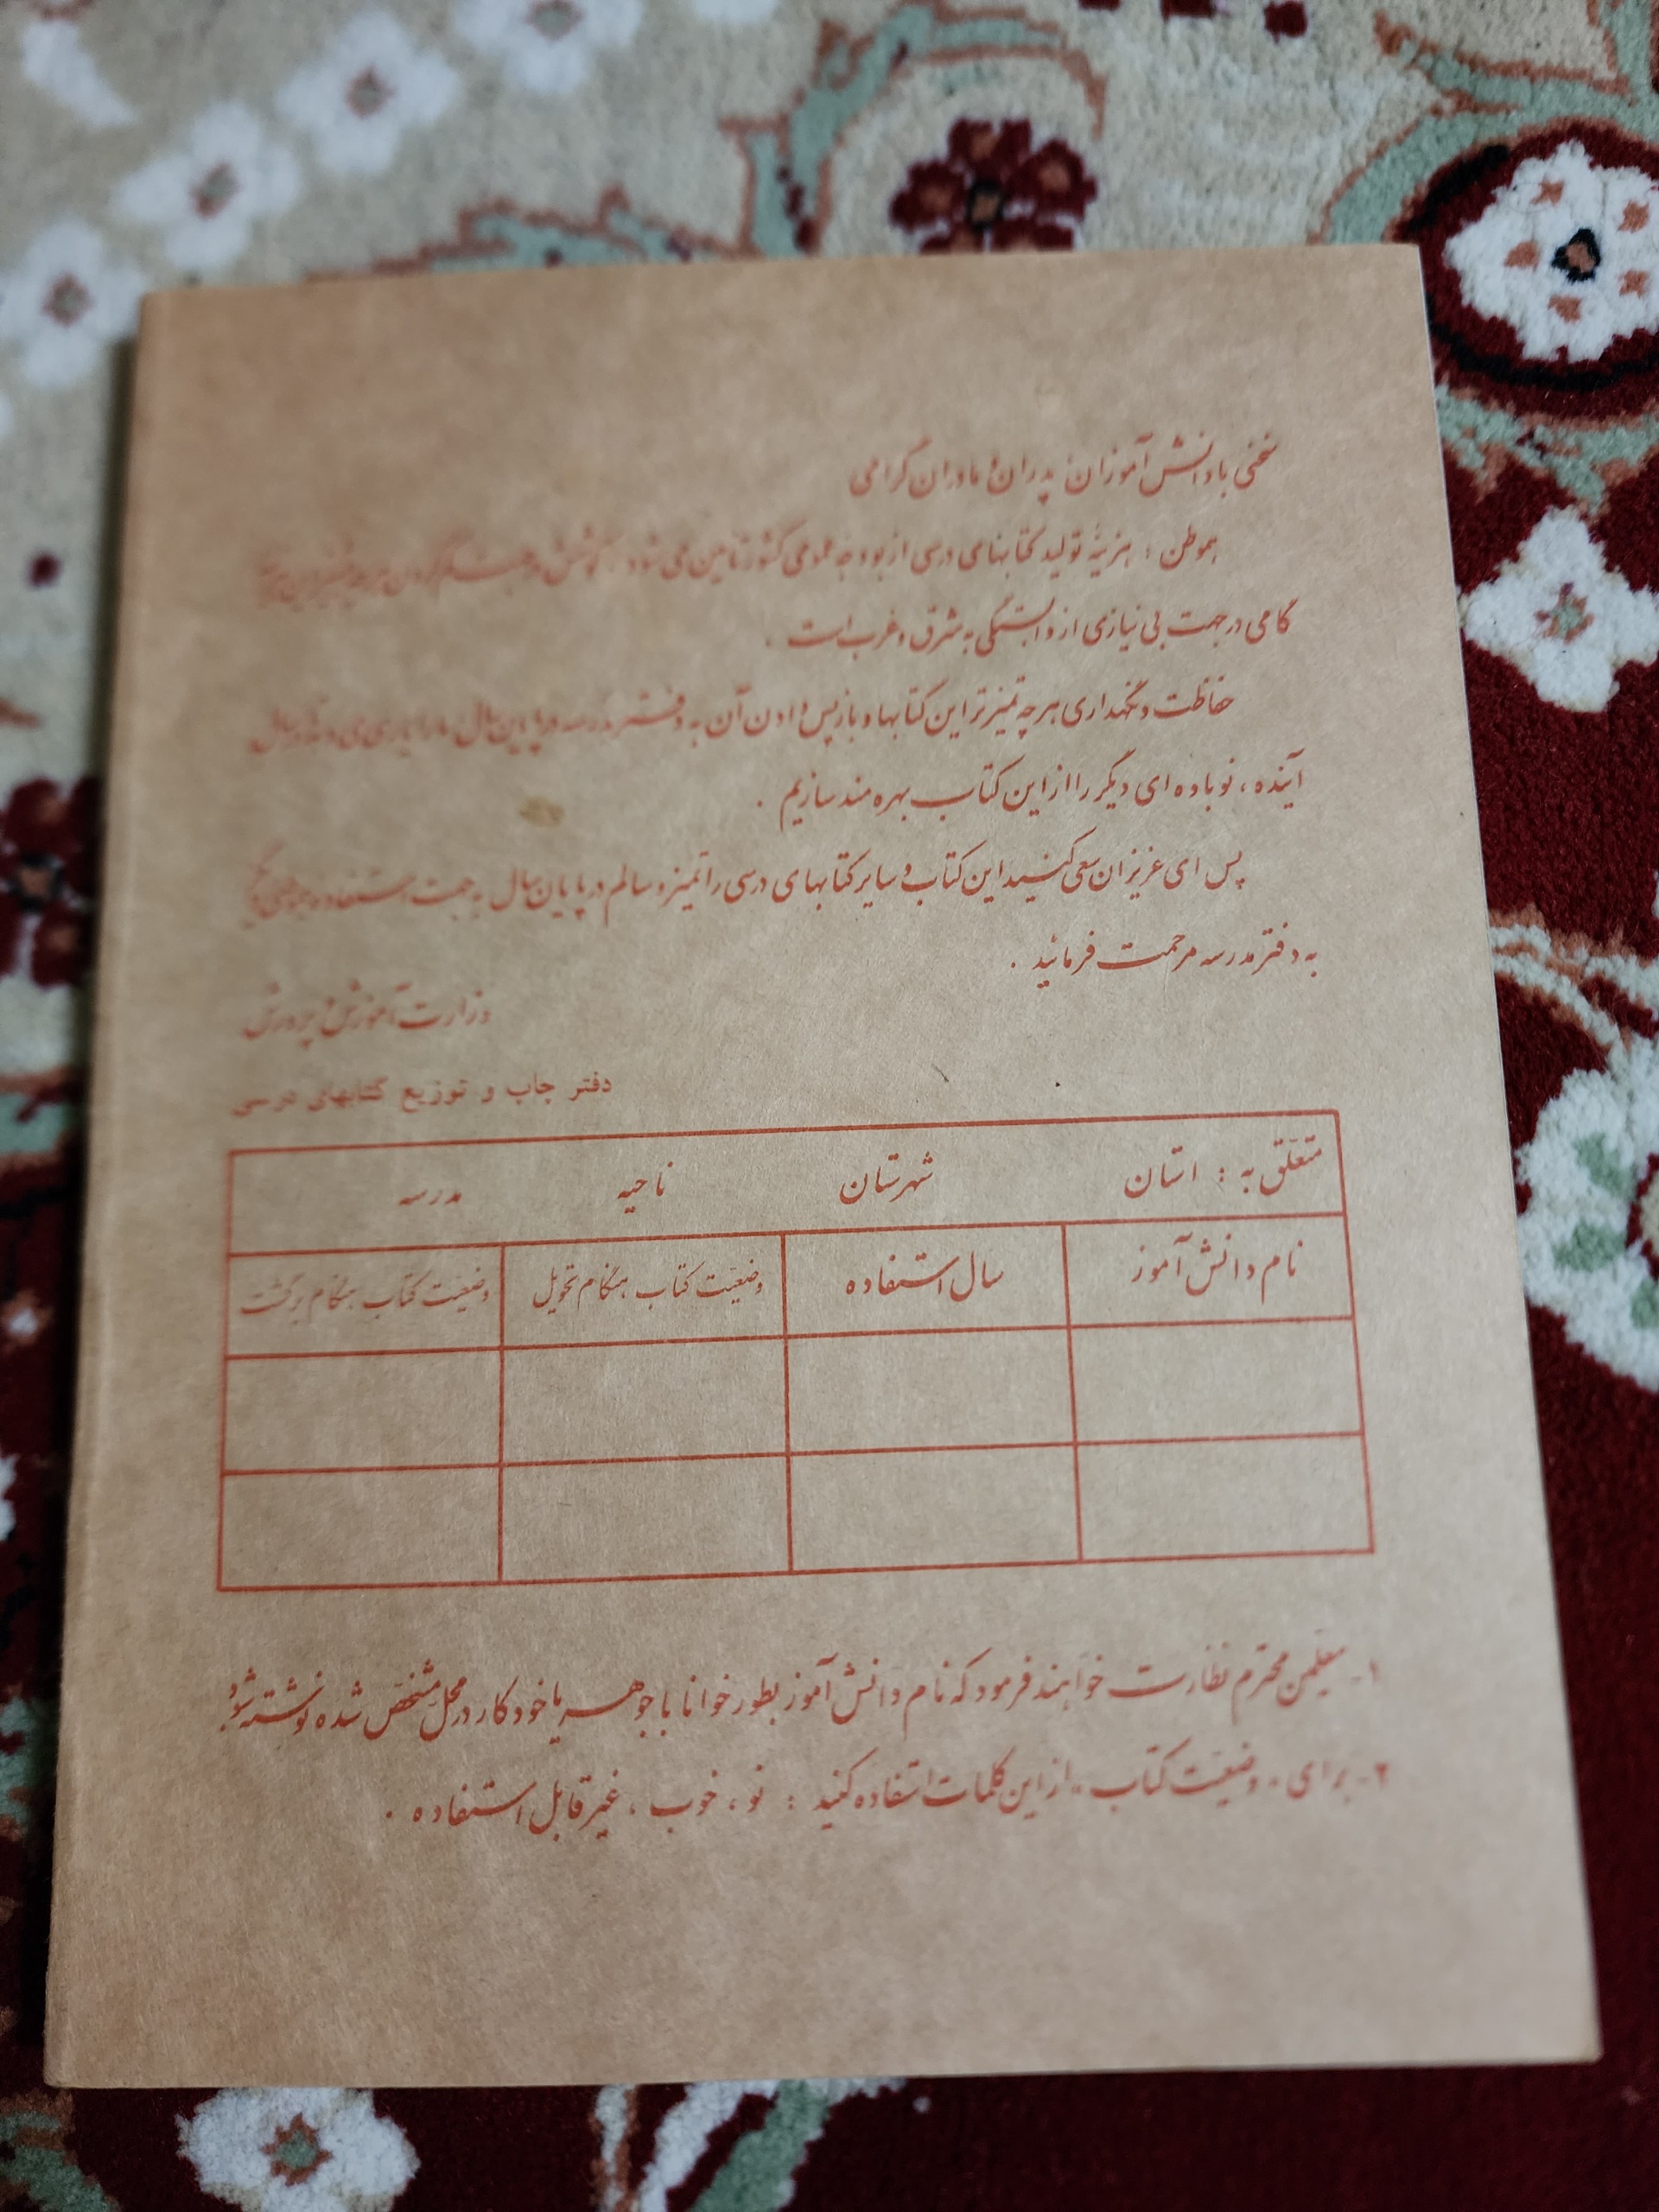 سخنی با دانش آموزان، پدران و مادران گرامی
هموطن : هزینهٔ تولید کتابهای درسی از بودجه عمومی کشور تامین می شود ، کوشش در
گامی در جهت بی نیازی از وابستگی به شرق و غرب است .
حفاظت و نگهداری هر چه تمیزتر این کتابها و باز پس دادن آن به دفتر مدرسه در پایان سال، ما را یاری می دهد تا در سال
آینده ، نوباوه ای دیگر را از این کتاب بهره مند سازیم .
پس ای عزیزان سعی کنید این کتاب و سایر کتابهای درسی را تمیز و سالم در پایان سال به جهت استفاده
به دفتر مدرسه مرحمت فرمائید .
وزارت آموزش و پرورش
دفتر چاپ و توزیع کتابهای درسی
متعلق به : استان شهرستان ناحیه مدرسه
نام دانش آموز سال استفاده وضعیت کتاب هنگام تحویل وضعیت کتاب هنگام برگشت
۱- معلمین محترم نظارت خواهند فرمود که نام دانش آموز بطور خوانا با جوهر یا خودکار در محل مشخص شده نوشته شود
۲- برای - وضعیت کتاب - از این کلمات استفاده کنید : نو ، خوب ، غیر قابل استفاده .